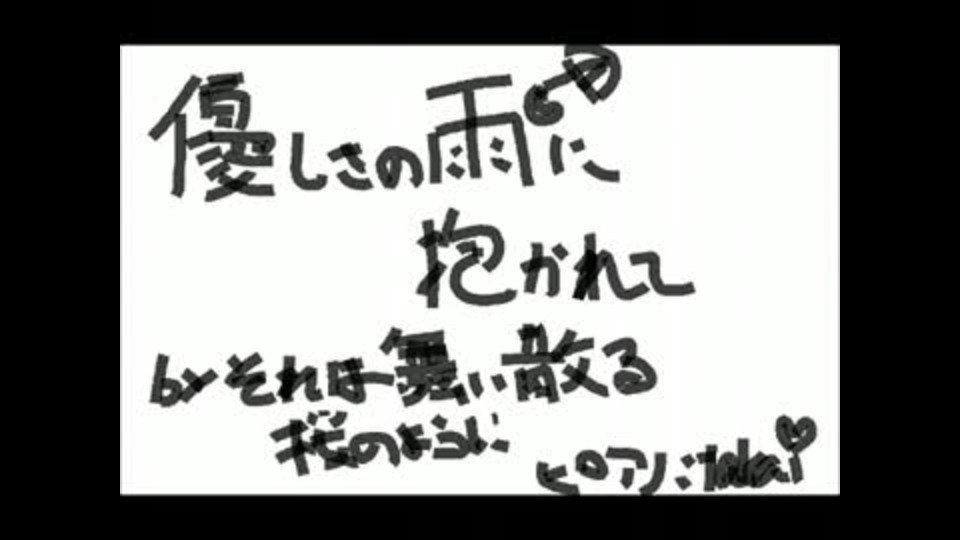 優しさの雨に
抱かれて
byそれは舞い散る
桜のように
ピアノ: